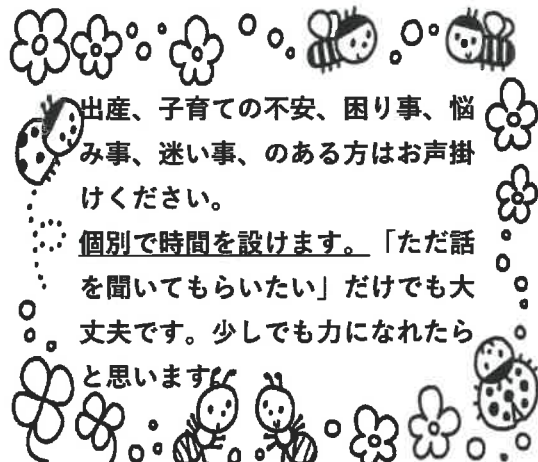 出産、子育ての不安、困り事、悩
み事、迷い事、のある方はお声掛
けください。
個別で時間を設けます。「ただ話
を聞いてもらいたい」だけでも大
丈夫です。少しでも力になれたら
と思います。